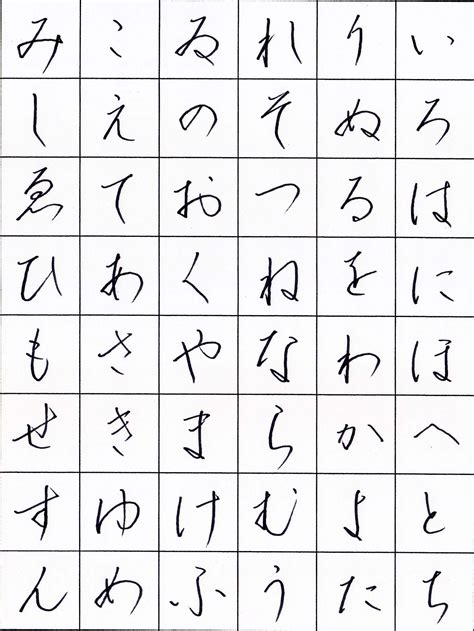 いろはにほへとち
りぬるをわかよた
れそつねならむう
ゐのおくやまけふ
こえてあさきゆめ
みしゑひもせすん